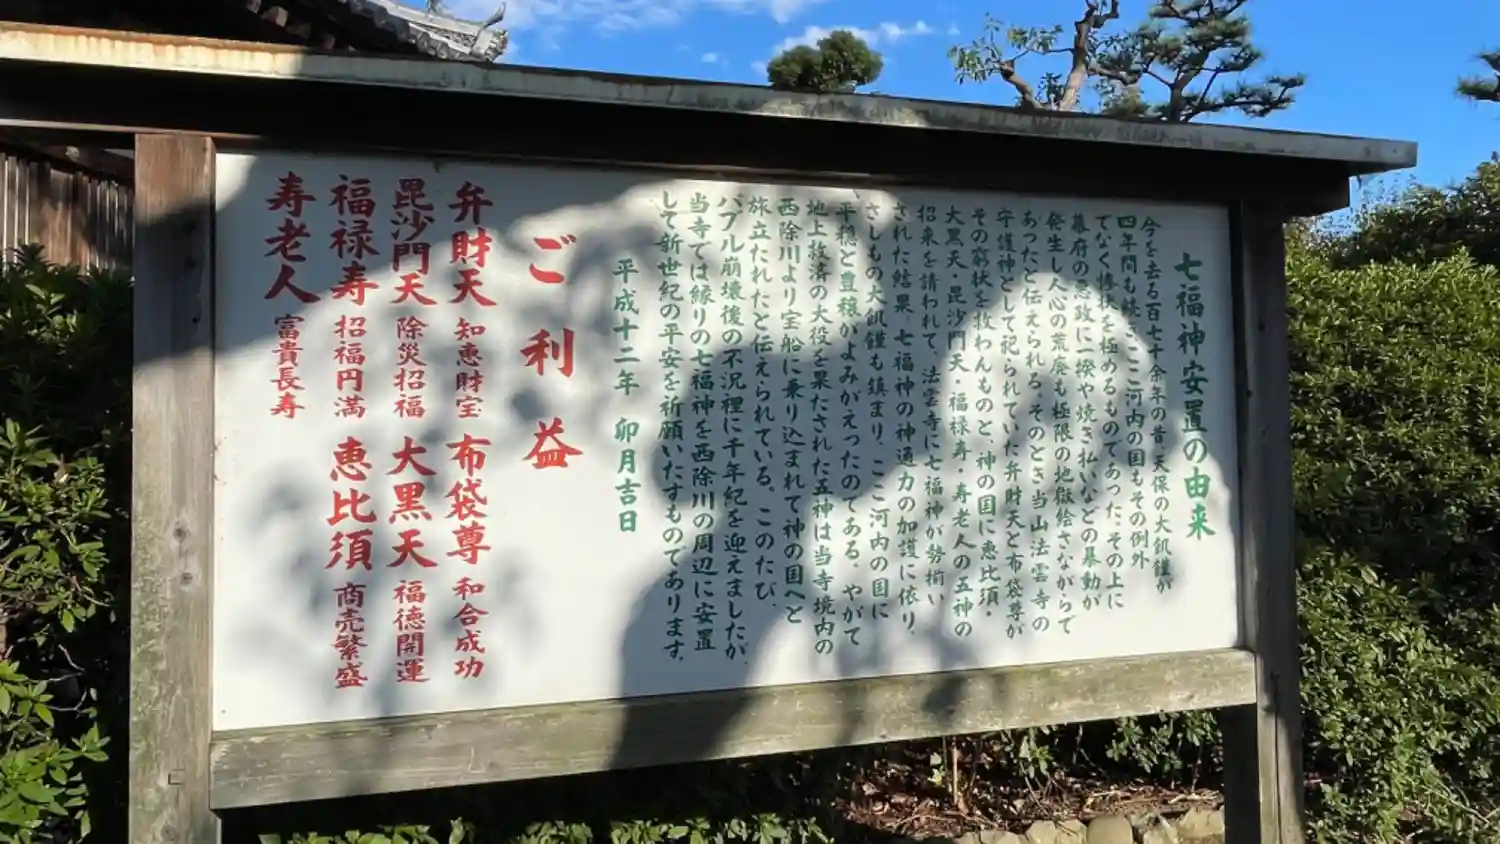 七福神安置の由来
今を去る一百七十余年の昔、天保の大飢饉が
四年間も続き、ここ河内の国もその例外
でなく惨状を極めるものであった。その上に
幕府の悪政に一揆や焼き払いなどの暴動が
発生し人心の荒廃も極限の地獄絵さながらで
あったと伝えられる。そのとき当山法雲寺の
守護神として祀られていた弁財天と布袋尊が
その窮状を救わんものと、神の国に恵比須・
大黒天・毘沙門天・福禄寿・寿老人の五神の
招来を請われて、法雲寺に七福神が勢揃い
された結果、七福神の神通力の加護に依り、
さしもの大飢饉も鎮まり、ここ河内の国に
平穏と豊穣がよみがえったのである。やがて
地上救済の大役を果たされた五神は当寺境内の
西除川より宝船に乗り込まれて神の国へと
旅立たれたと伝えられている。このたび、
バブル崩壊後の不況裡に千年紀を迎えましたが、
当寺では縁りの七福神を西除川の周辺に安置
して新世紀の平安を祈願いたすものであります。
平成十二年 卯月吉日
ご利益
弁財天 知恵財宝 布袋尊 和合成功
毘沙門天 除災招福 大黒天 福徳開運
福禄寿 招福円満 恵比須 商売繁盛
寿老人 富貴長寿